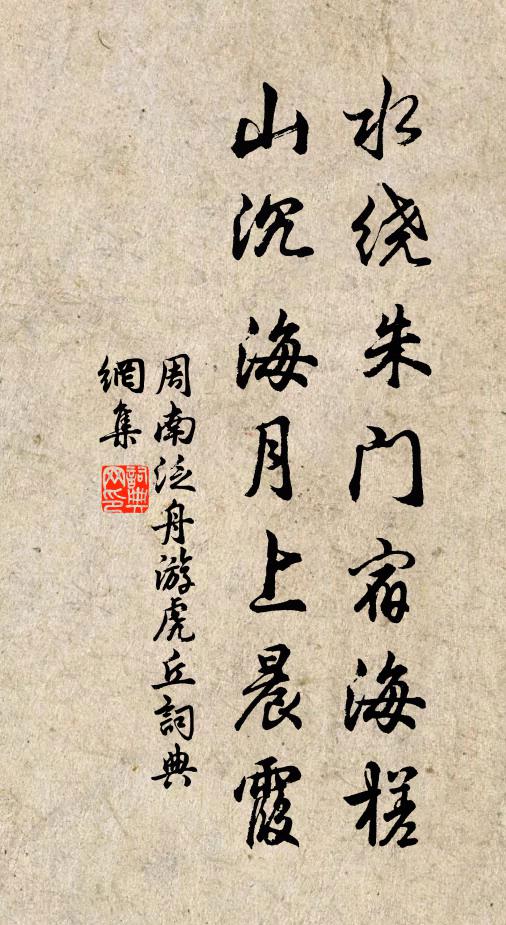 水绕朱门宿海槎
山沉海月上晨霞
周南泛舟游虎丘詞典
網集
詞典
网印